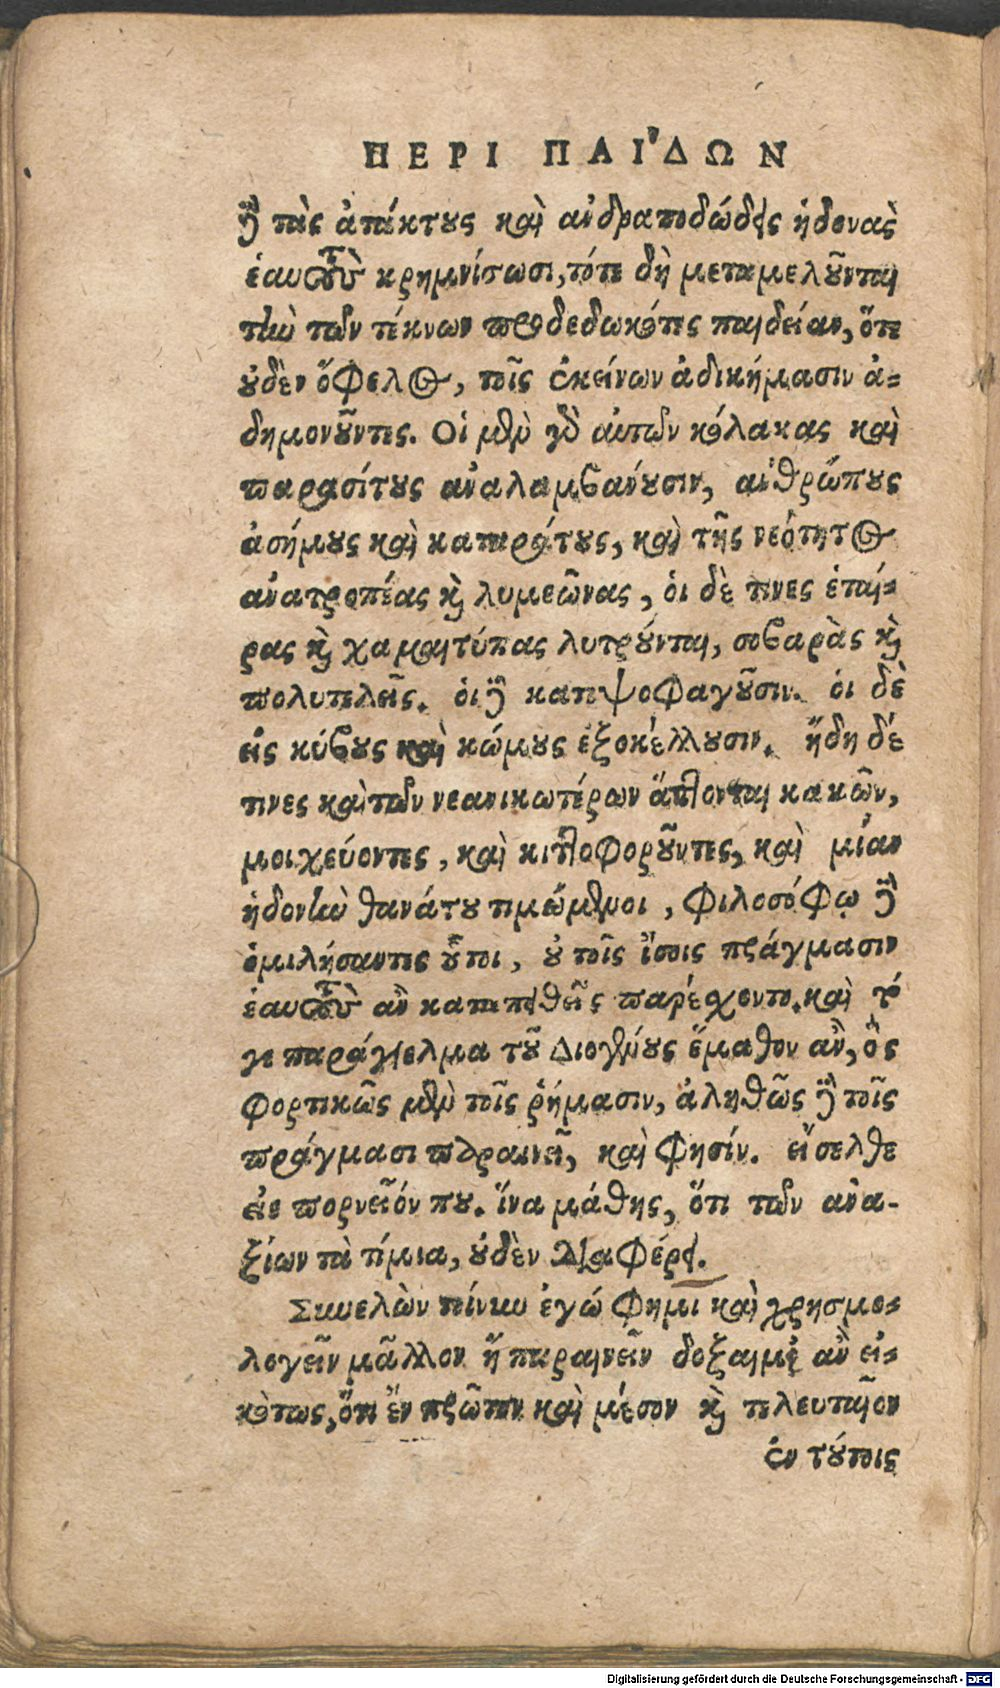 ΠΕΡΙ ΠΑΙ´ΔΩΝ
δὲ τὰς ἀτάκτους καὶ ἀνδραποδώδεις ἡδονὰς
ἑαυτοὺς κρημνίσωσι, τότε δὴ μεταμελοῦνται
τὴν τῶν τέκνων προδεδωκότες παιδείαν, ὅτε
οὐδὲν ὄφελος, τοῖς ἐκείνων ἀδικήμασιν ἀ-
δημονοῦντες. Οἱ μὲν γὸ αὐτῶν κόλακας καὶ
παρασίτους ἀναλαμβανόυσιν, ἀνθρώπους
ἀσήμους καὶ καταράτους, καὶ τῆς νεότητος
ἀνατροπέας καὶ λυμεῶνας, ὁι δὲ τινες ἑταί-
ρας καὶ χαμαιτύπας λυτρόυνται, σοβαρὰς καὶ
πολυτελεῖς. ὁι δὲ κατεψοφαγοῦσιν. ὁι δὲ
εἰς κύβους καὶ κώμους ἐξοκέλλουσιν. ἤδη δέ
τινες καὶ τῶν νεανικωτέρων ἅπτονται κακῶν,
μοιχεύοντες, καὶ κιττοφοροῦντες, καὶ μίαν
ἡδονὴν θανάτου τιμώμενοι, φιλοσόφῳ δὲ
ὁμιλήσαντες οὗτοι, οὐ τοῖς ἴσοις πράγμασιν
ἑαυτοὺς ἂν καταπειθεῖς παρέχοντο. καὶ τό
γε παράγγελμα τοῦ Διογένους ἔμαθον ἂν, ὃς
φορτικῶς μὲν τοῖς ῥήμασιν, ἀληθῶς δὲ τοῖς
πράγμασι παραινεῖ, καὶ φησίν. εἴσελθε
εἰς πορνεῖόν που. ἵνα μάθης, ὅτι τῶν ἀνα-
ξίων τὰ τίμια, οὐδὲν διαφέρει.
Συνελὼν τοίνυν ἐγώ φημι καὶ χρησμο-
λογεῖν μᾶλλον ἢ παραινεῖν δοξαιμι ἂν εἰ-
κότως, ὅτι ἓν πρῶτον καὶ μέσον καὶ τελευταῖον
ἐν τούτοις